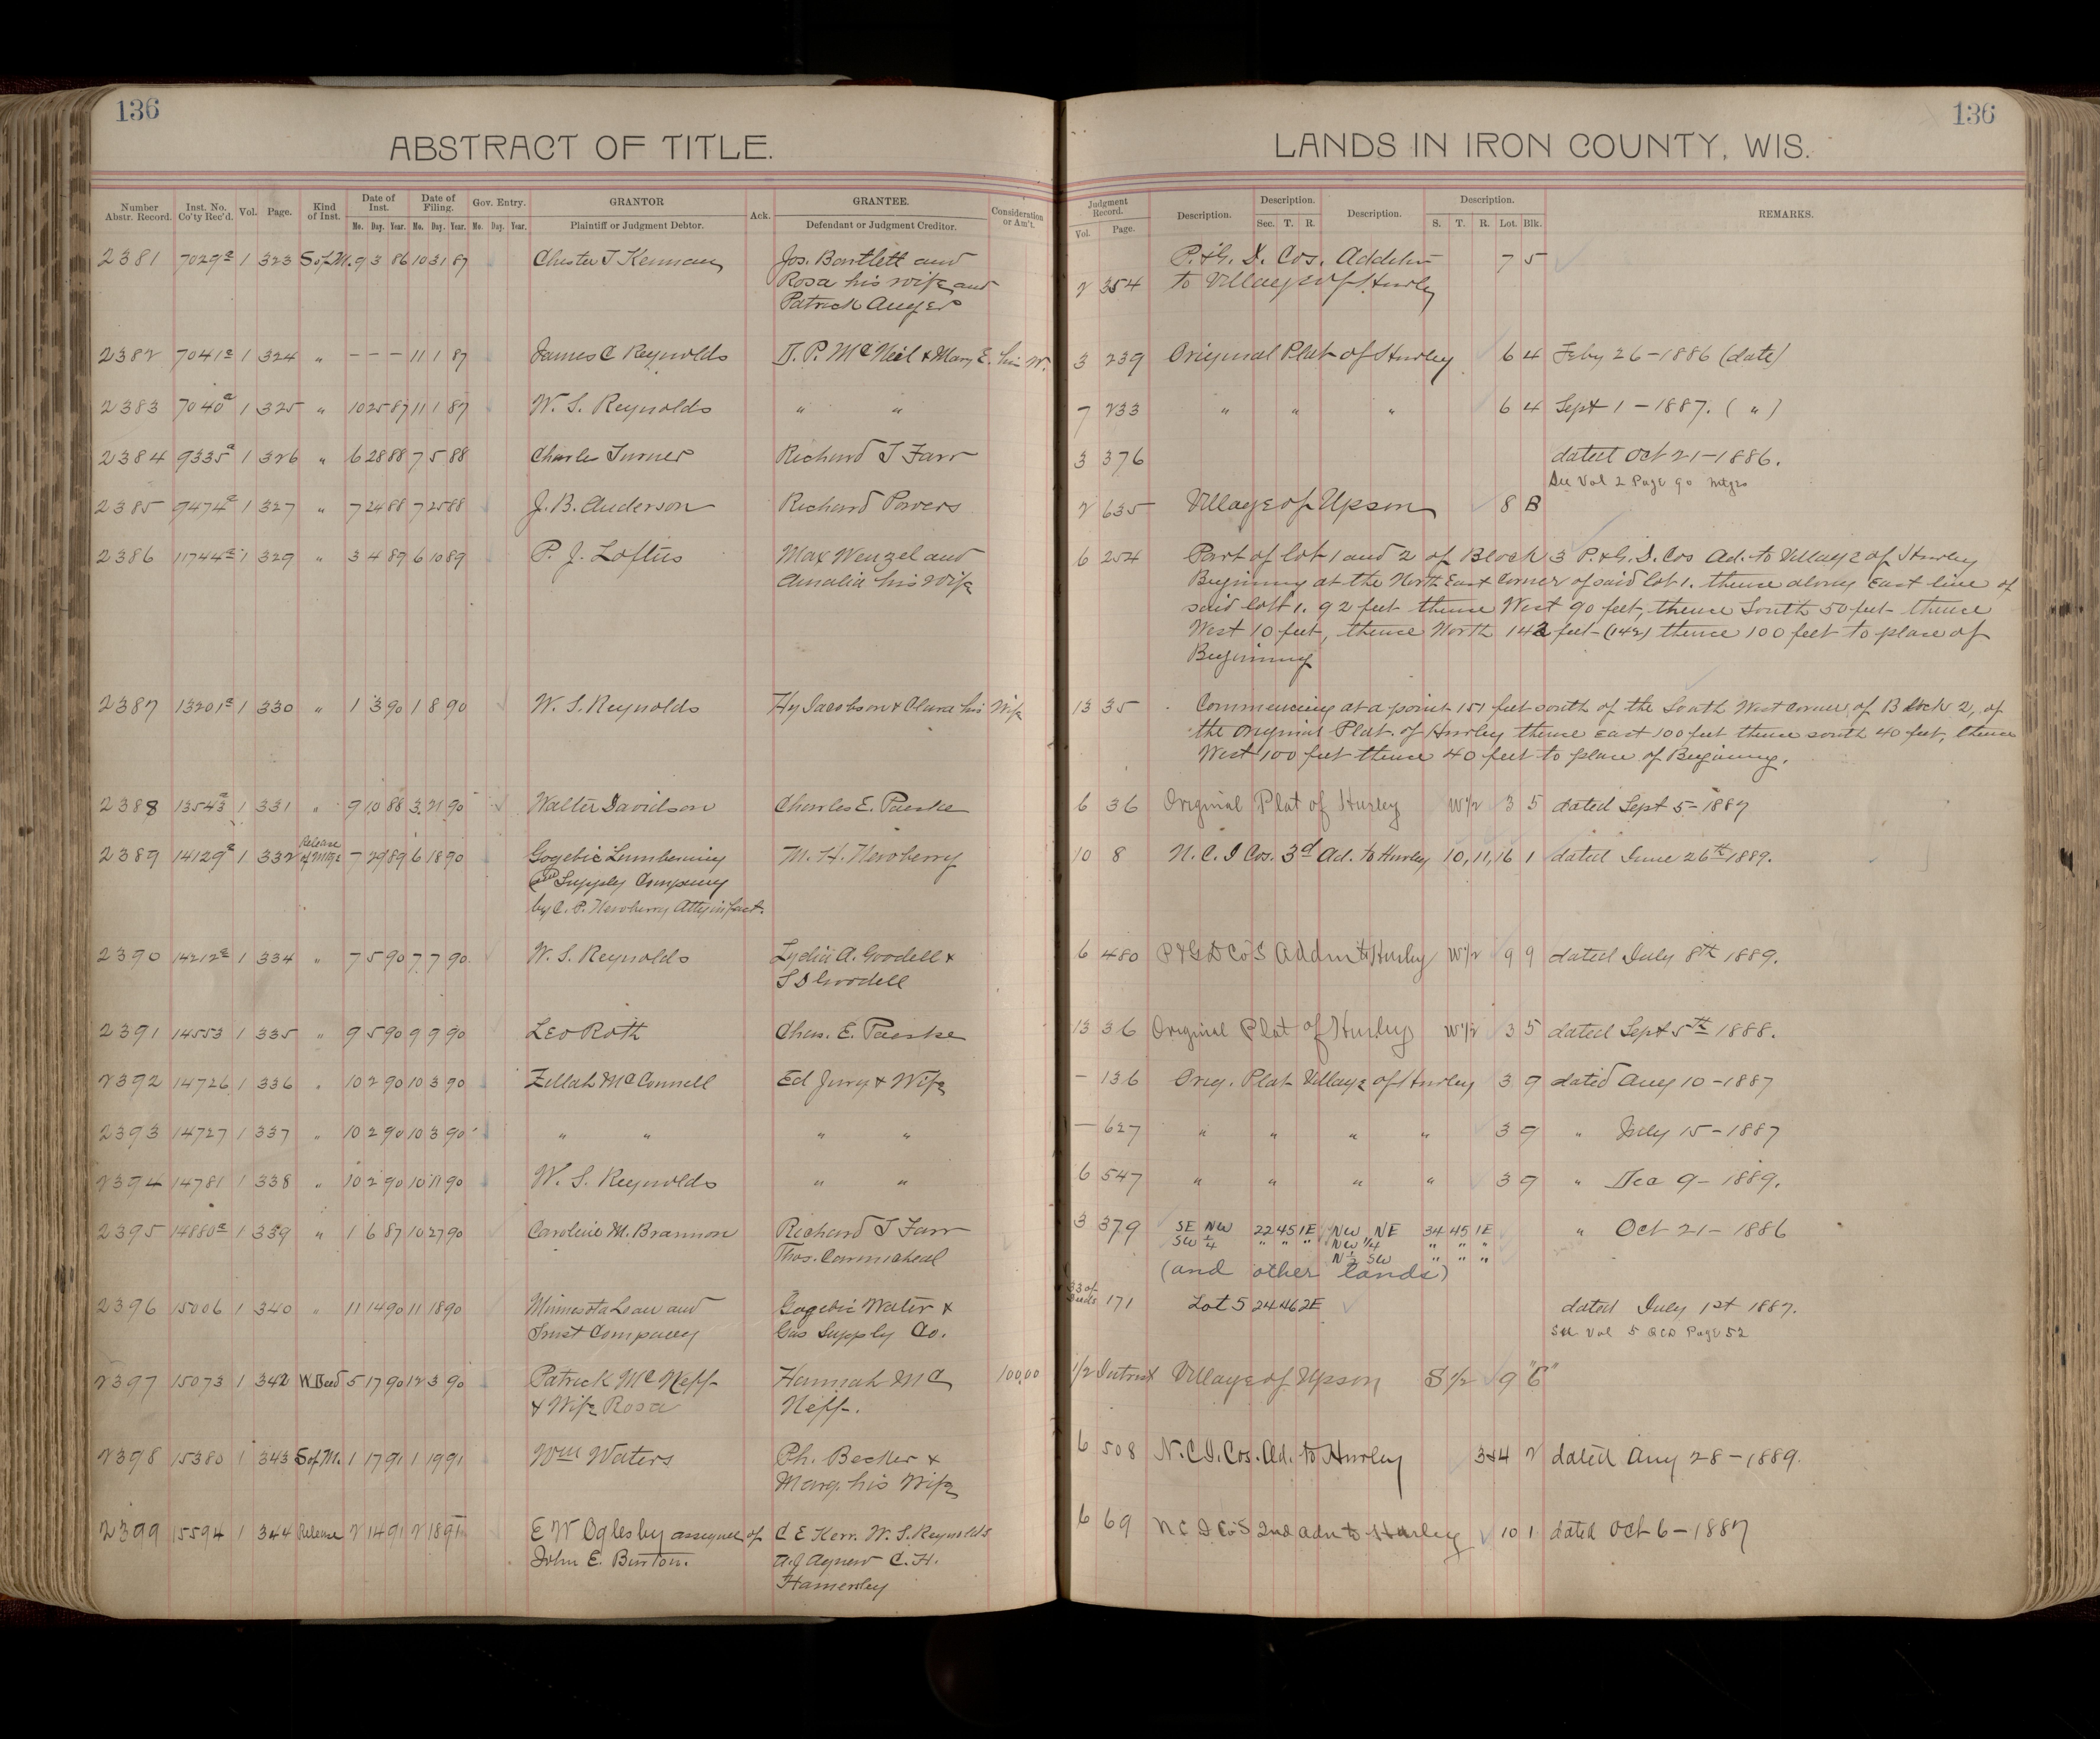 136
ABSTRACT OF TITLE.
Number Abstr. Record. Inst. No. Co'ty Rec'd. Vol. Page. Kind of Inst. Date of Inst. Date of Filing. Gov. Entry. GRANTOR Ack. GRANTEE. Consideration or Am't.
Mo. Day. Year. Mo. Day. Year. Mo. Day. Year. Plaintiff or Judgment Debtor. Defendant or Judgment Creditor.
2381 7029a 1 323 S of M. 9 3 86 10 31 87 Chester T Kennan Jos. Bartlett and
Rosa his wife and
Patrick Auger
2382 7041a 1 324 " - - - 11 1 87 James C Reynolds D. P. McNeil & Mary E. his W.
2383 7040a 1 325 " 10 25 87 11 1 87 W. S. Reynolds " "
2384 9335a 1 326 " 6 28 88 7 5 88 Charles Turner Richard T Farr
2385 9474a 1 327 " 7 24 88 7 25 88 J. B. Anderson Richard Powers
2386 11744a 1 329 " 3 4 89 6 10 89 P. J. Loftus Max Wenzel and
Amalia his Wife
2387 13201a 1 330 " 1 3 90 1 8 90 W. S. Reynolds Hy Jacobson & Clara his Wife
2388 13543a 1 331 " 9 10 88 3 21 90 Walter Davidson Charles E. Paeske
2389 14129a 1 332 Release of Mtge 7 29 89 6 18 90 Gogebic Lumbering M. H. Newberry
and Supply Company
by C. P. Newberry Atty in fact.
2390 14212a 1 334 " 7 5 90 7 7 90 W. S. Reynolds Lydia A. Goodell &
S D Goodell
2391 14553 1 335 " 9 5 90 9 9 90 Leo Roth Chas. E. Paeske
2392 14726 1 336 " 10 2 90 10 3 90 Zillah McConnell Ed Jury & Wife
2393 14727 1 337 " 10 2 90 10 3 90 " " " "
2394 14781 1 338 " 10 2 90 10 11 90 W. S. Reynolds " "
2395 14880a 1 339 " 1 6 87 10 27 90 Caroline M. Brannon Richard T Farr
Thos. Carmicheal
2396 15006 1 340 " 11 14 90 11 18 90 Minnesota Loan and Gogebic Water &
Trust Company Gas Supply Co.
2397 15073 1 342 W. Deed 5 17 90 12 3 90 Patrick McNeff Hannah Mc 100.00
& Wife Rosa Neff.
2398 15380 1 343 S of M. 1 17 91 1 19 91 Wm Waters Ph. Becker &
Marg. his Wife
2399 15594 1 344 Release 2 14 91 2 18 91 E W Oglesby assignee of C E Kerr. W. S. Reynolds
John E. Burton. A. J Agnew C. H.
Hamersley
136
LANDS IN IRON COUNTY, WIS.
Judgment Record. Description. Description. Description. Description. REMARKS.
Vol. Page. Sec. T. R. S. T. R. Lot. Blk.
P. & G. D. Cos. Addition 7 5
2 354 to Village of Hurley
3 239 Original Plat of Hurley 6 4 Feby 26-1886 (date)
7 233 " " " 6 4 Sept 1-1887. ( " )
3 376 dated Oct 21-1886.
See Vol 2 Page 90 mtgs
2 635 Village of Upson 8 B
6 254 Part of lot 1 and 2 of Block 3 P. & G. D. Cos Ad. to Village of Hurley
Beginning at the North East Corner of said lot 1. thence along East line of
said lott 1. 92 feet thence West 90 feet, thence South 50 feet thence
West 10 feet, thence North 142 feet-(142) thence 100 feet to place of
Beginning
13 35 Commencing at a point 151 feet south of the South West corner of Block 2, of
the Original Plat. of Hurley thence East 100 feet thence south 40 feet, thence
West 100 feet thence 40 feet to place of Beginning.
6 36 Original Plat of Hurley W 1/2 3 5 dated Sept 5-1887
10 8 N. C. I Cos. 3d Ad. to Hurley 10, 11, 16 1 dated June 26th 1889.
6 480 P & G D Co's Addn to Hurley W 1/2 9 9 dated July 8th 1889.
13 36 Original Plat of Hurley W 1/2 3 5 dated Sept 5th 1888.
- 136 Orig. Plat Village of Hurley 3 9 dated Aug 10-1887
- 627 " " " " 3 9 " July 15-1887
6 547 " " " " 3 9 " Dec 9-1889.
3 379 SE NW 22 45 1E NW NE 34 45 1E " Oct 21-1886
SW 1/4 " " " NW 1/4 " " "
N 1/2 SW " " "
(and other lands)
33 of Deeds 171 Lot 5 24 46 2E dated July 1st 1887.
See Vol 5 QCD Page 52
1/2 Interest Village of Upson S 1/2 9 "C"
6 508 N. C. I. Cos. Ad. to Hurley 3&4 2 dated Aug 28-1889.
6 69 N C I Co's 2nd adn to Hurley 10 1 dated Oct 6-1887